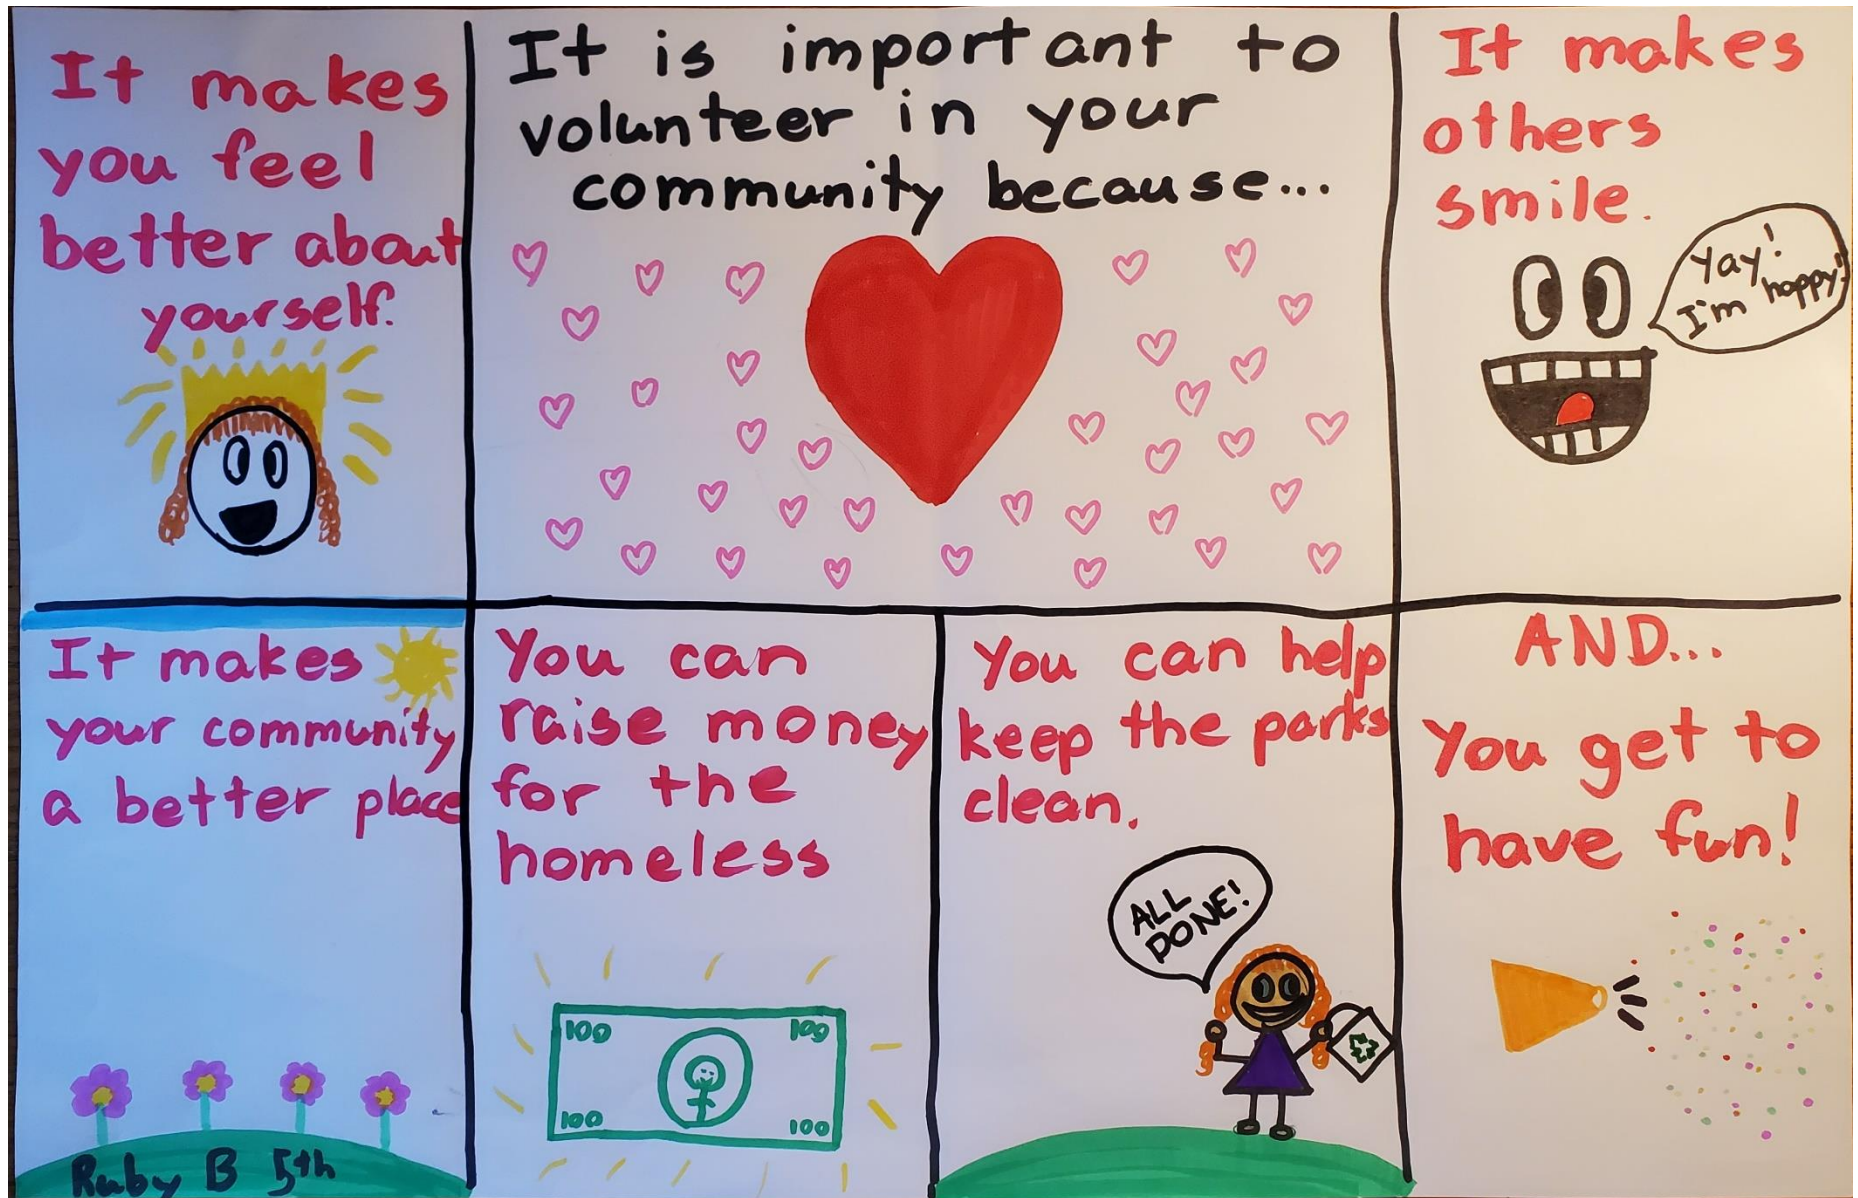 It makes
you feel
better about
yourself.
It is important to
volunteer in your
community because...
It makes
others
smile.
Yay!
I'm happy!
It makes
your community
a better place
Ruby B 5th
You can
raise money
for the
homeless
100 100
100 100
You can help
keep the parks
clean.
ALL
DONE!
AND...
You get to
have fun!